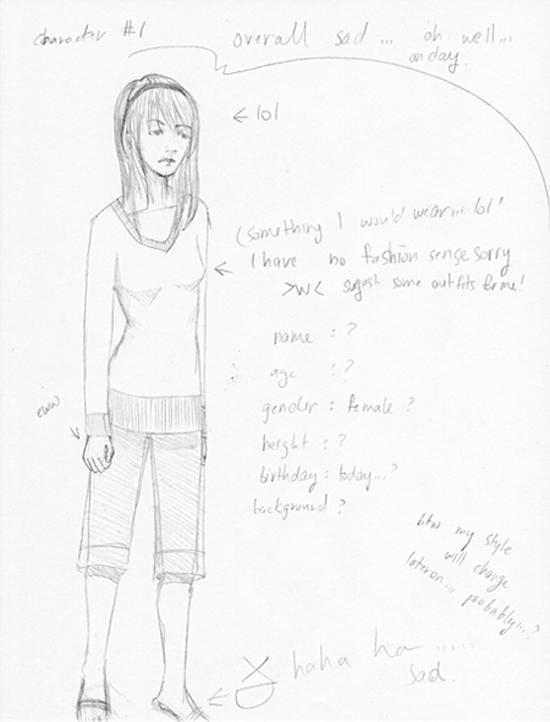 character #1
overall sad ... oh well...
on day.
← lol
(something I would wear... lol!
I have no fashion sense sorry
>w< sugest some outfits for me!
name : ?
age : ?
gender : female ?
eww
height : ?
birthday : today...?
background ?
btw my style
will change
lateron... probably...?
XD haha ha .....
sad.